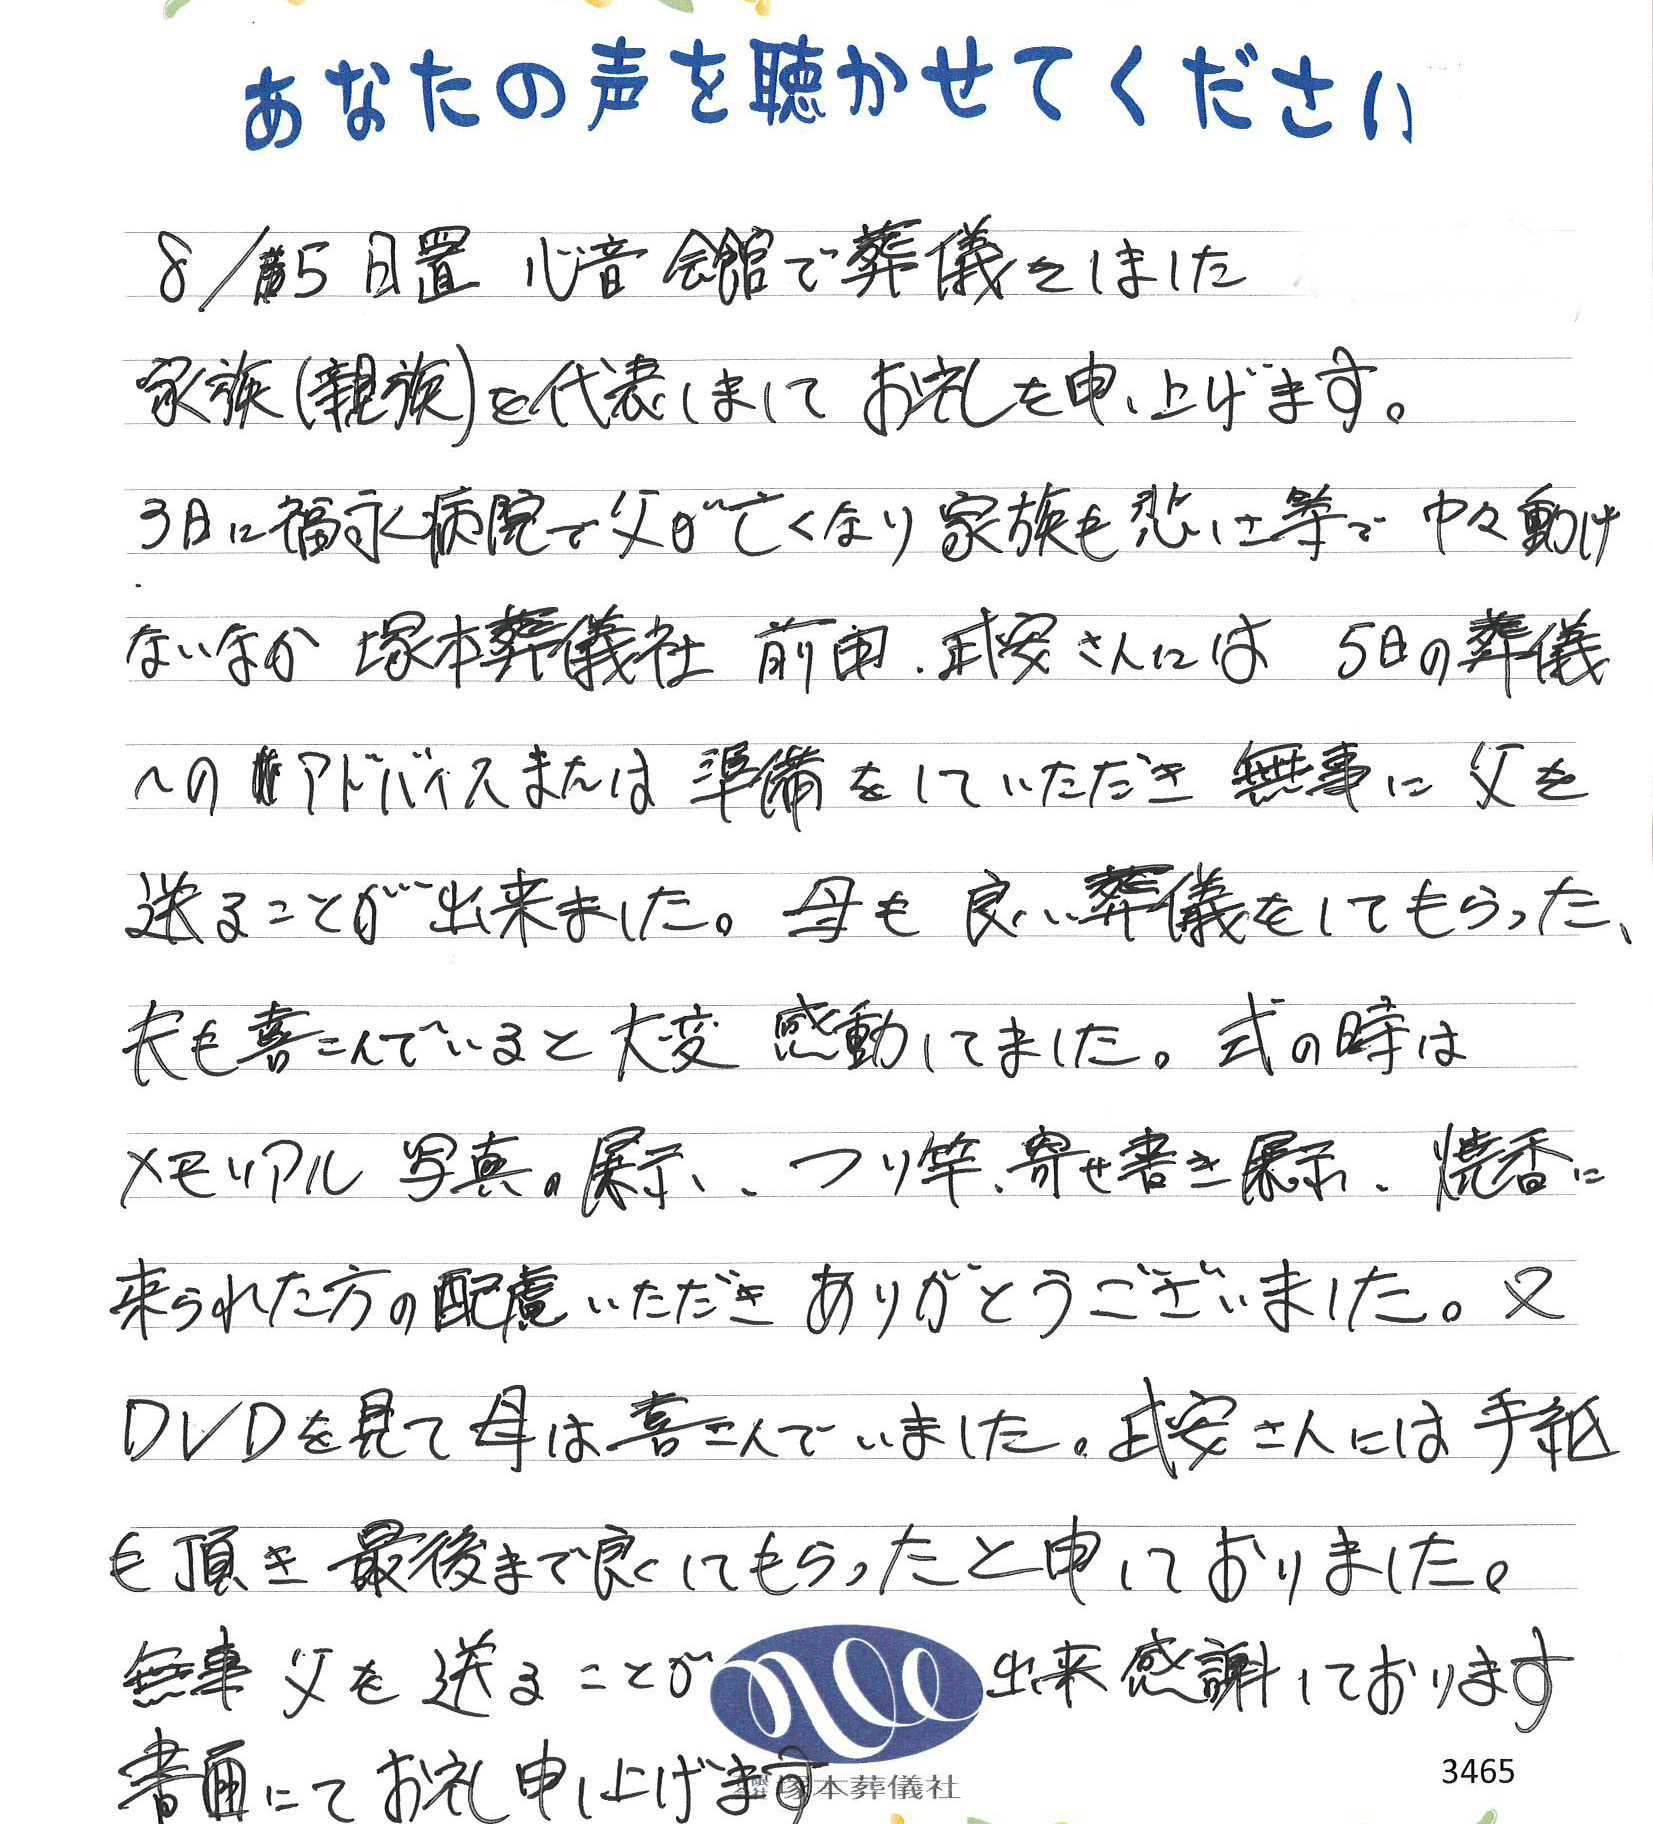 あなたの声を聴かせてください
8/5 日置 心音会館で葬儀をしました
家族(親族)を代表しまして お礼を申し上げます。
3日に福永病院で父が亡くなり 家族も悲しさ等で 中々動け
ないなか 塚本葬儀社 前田.武安さんには 5日の葬儀
への アドバイスまたは 準備をしていただき 無事に 父を
送ることが出来ました。母も 良い葬儀をしてもらった、
夫も喜こんでいると大変 感動してました。式の時は
メモリアル 写真の展示、、つり竿、寄せ書き展示、焼香に
来られた方の配慮いただき ありがとうございました。又
DVDを見て母は喜こんでいました。武安さんには手紙
も頂き 最後まで良くしてもらったと申しておりました。
無事 父を送ることが 出来 感謝しております
書面にてお礼申し上げます
塚本葬儀社
3465